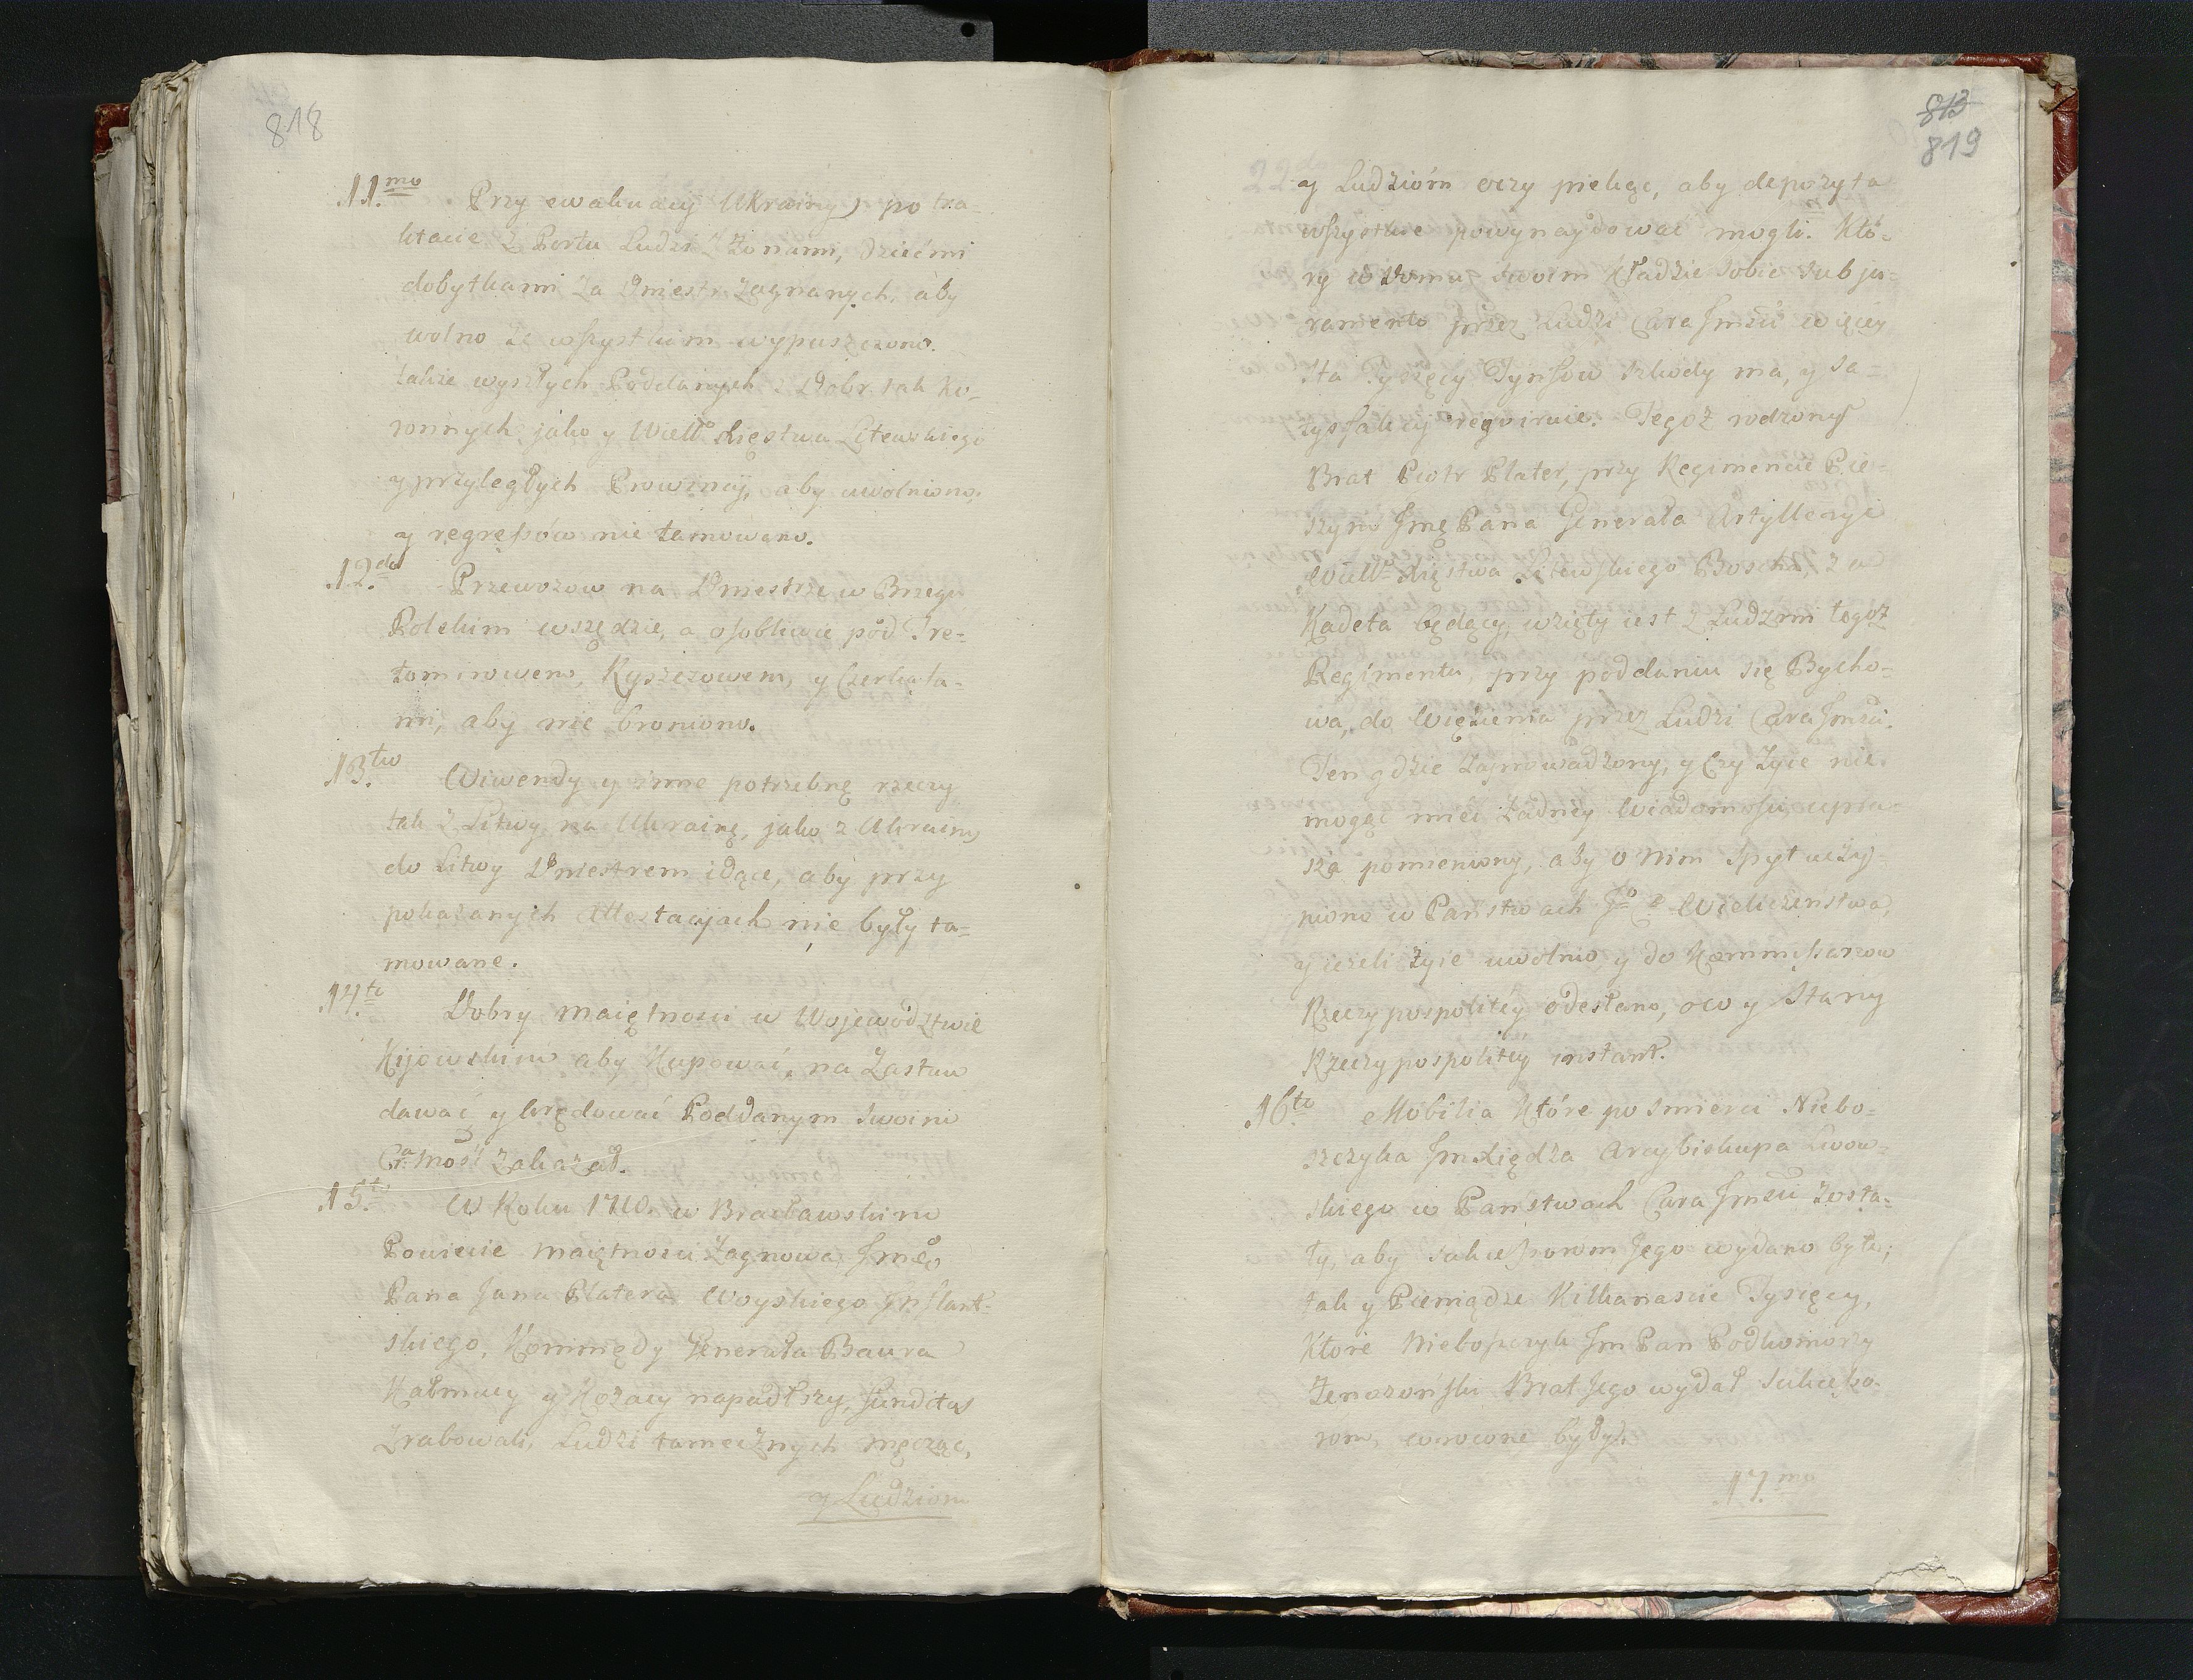 818
11.mo Przy ewakuacij Ukrainy po tra-
ktacie z Portu Ludzi z Żonami, dziećmi
dobytkami za Dniestr zagnanych, aby
wolno ze wszystkim wypuszczono.
także wyszłych Poddanych z Dobr tak Ko-
ronnych jako y Wiel. Xięstwa Litewskiego
y przyległych Prowincij, aby uwolniono.
y regressów nie tamowano.
12.do Przewozow na Dniestrze w Brzegu
Polskim wszędzie, a osobliwie pod Tre-
tomirowem, Kyszczowem, y Czerkasa-
mi, aby nie broniono.
13.tio Wiwendy y inne potrzebnę rzeczy
tak z Litwy na Ukrainę, jako z Ukrainy
do Litwy Dniestrem idące, aby przy
pokazanych Attestacyjach nie były ta-
mowane.
14.to Dobry maiętnosci w Wojewodztwie
Kijowskim aby Kupować, na Zastaw
dawać y Arędować Poddanym swoim
Cr. Mość zakazał.
15.to W Roku 1710. w Bracławskim
Powiecie maiętnosci Zagnowa Jmco
Pana Jana Platera Woyskiego Jnflant-
skiego, Kommędy Generała Baura
Kałmucy y Kozacy napadłszy, funditus
Zrabowali, Ludzi tamecżnych męcząc,
y Ludziom
813
819
y Ludziom oczy piekąc, aby depozyta
wszystkie powynaydować mogli. Któ-
ry w domu swoim kładzie sobie sub ju-
ramento przez Ludzi Cara Jmsci więcey
sta Tysięcy Tynfow szkody ma, y sa-
tysfakcij requiruie. Tegoż rodzony
Brat Piotr Plater, przy Regimencie Pie-
szym Jmę Pana Generała Artylleryi
Wiel. Xięstwa Litewskiego Boscha, za
Kadeta będący, wzięty iest z Ludzmi tegoż
Regimentu, przy poddaniu się Bycho-
wa, do Więzienia przez Ludzi Cara Jmsci.
Ten gdzie zaprowadzony, y Czy Żyie nie
mogąc mieć Żadney Wiadomosci, upra-
sza pomieniony, aby o nim spyt uczy-
niono w Państwach Jo Wieliczeństwa,
y ieżeli żyie uwolnio, y do Kommissarzow
Rzeczypospolitey odesłano, oco y Stany
Rzeczypospolitey instant.
16.to Mobilia Które po smierci Niebo-
szczyka Jm Xiędza Arcybiskupa Lwow-
skiego w Państwach Cara Jmsci Zosta-
ły, aby sukcessorom Jego wydano były;
tak y Pieniądze Kilkanascie Tysięcy,
Ktore Nieboszczyk Jm Pan Podkomorzy
Brat Jego wydał sukcesso-
rom, wrocone były.
17.mo